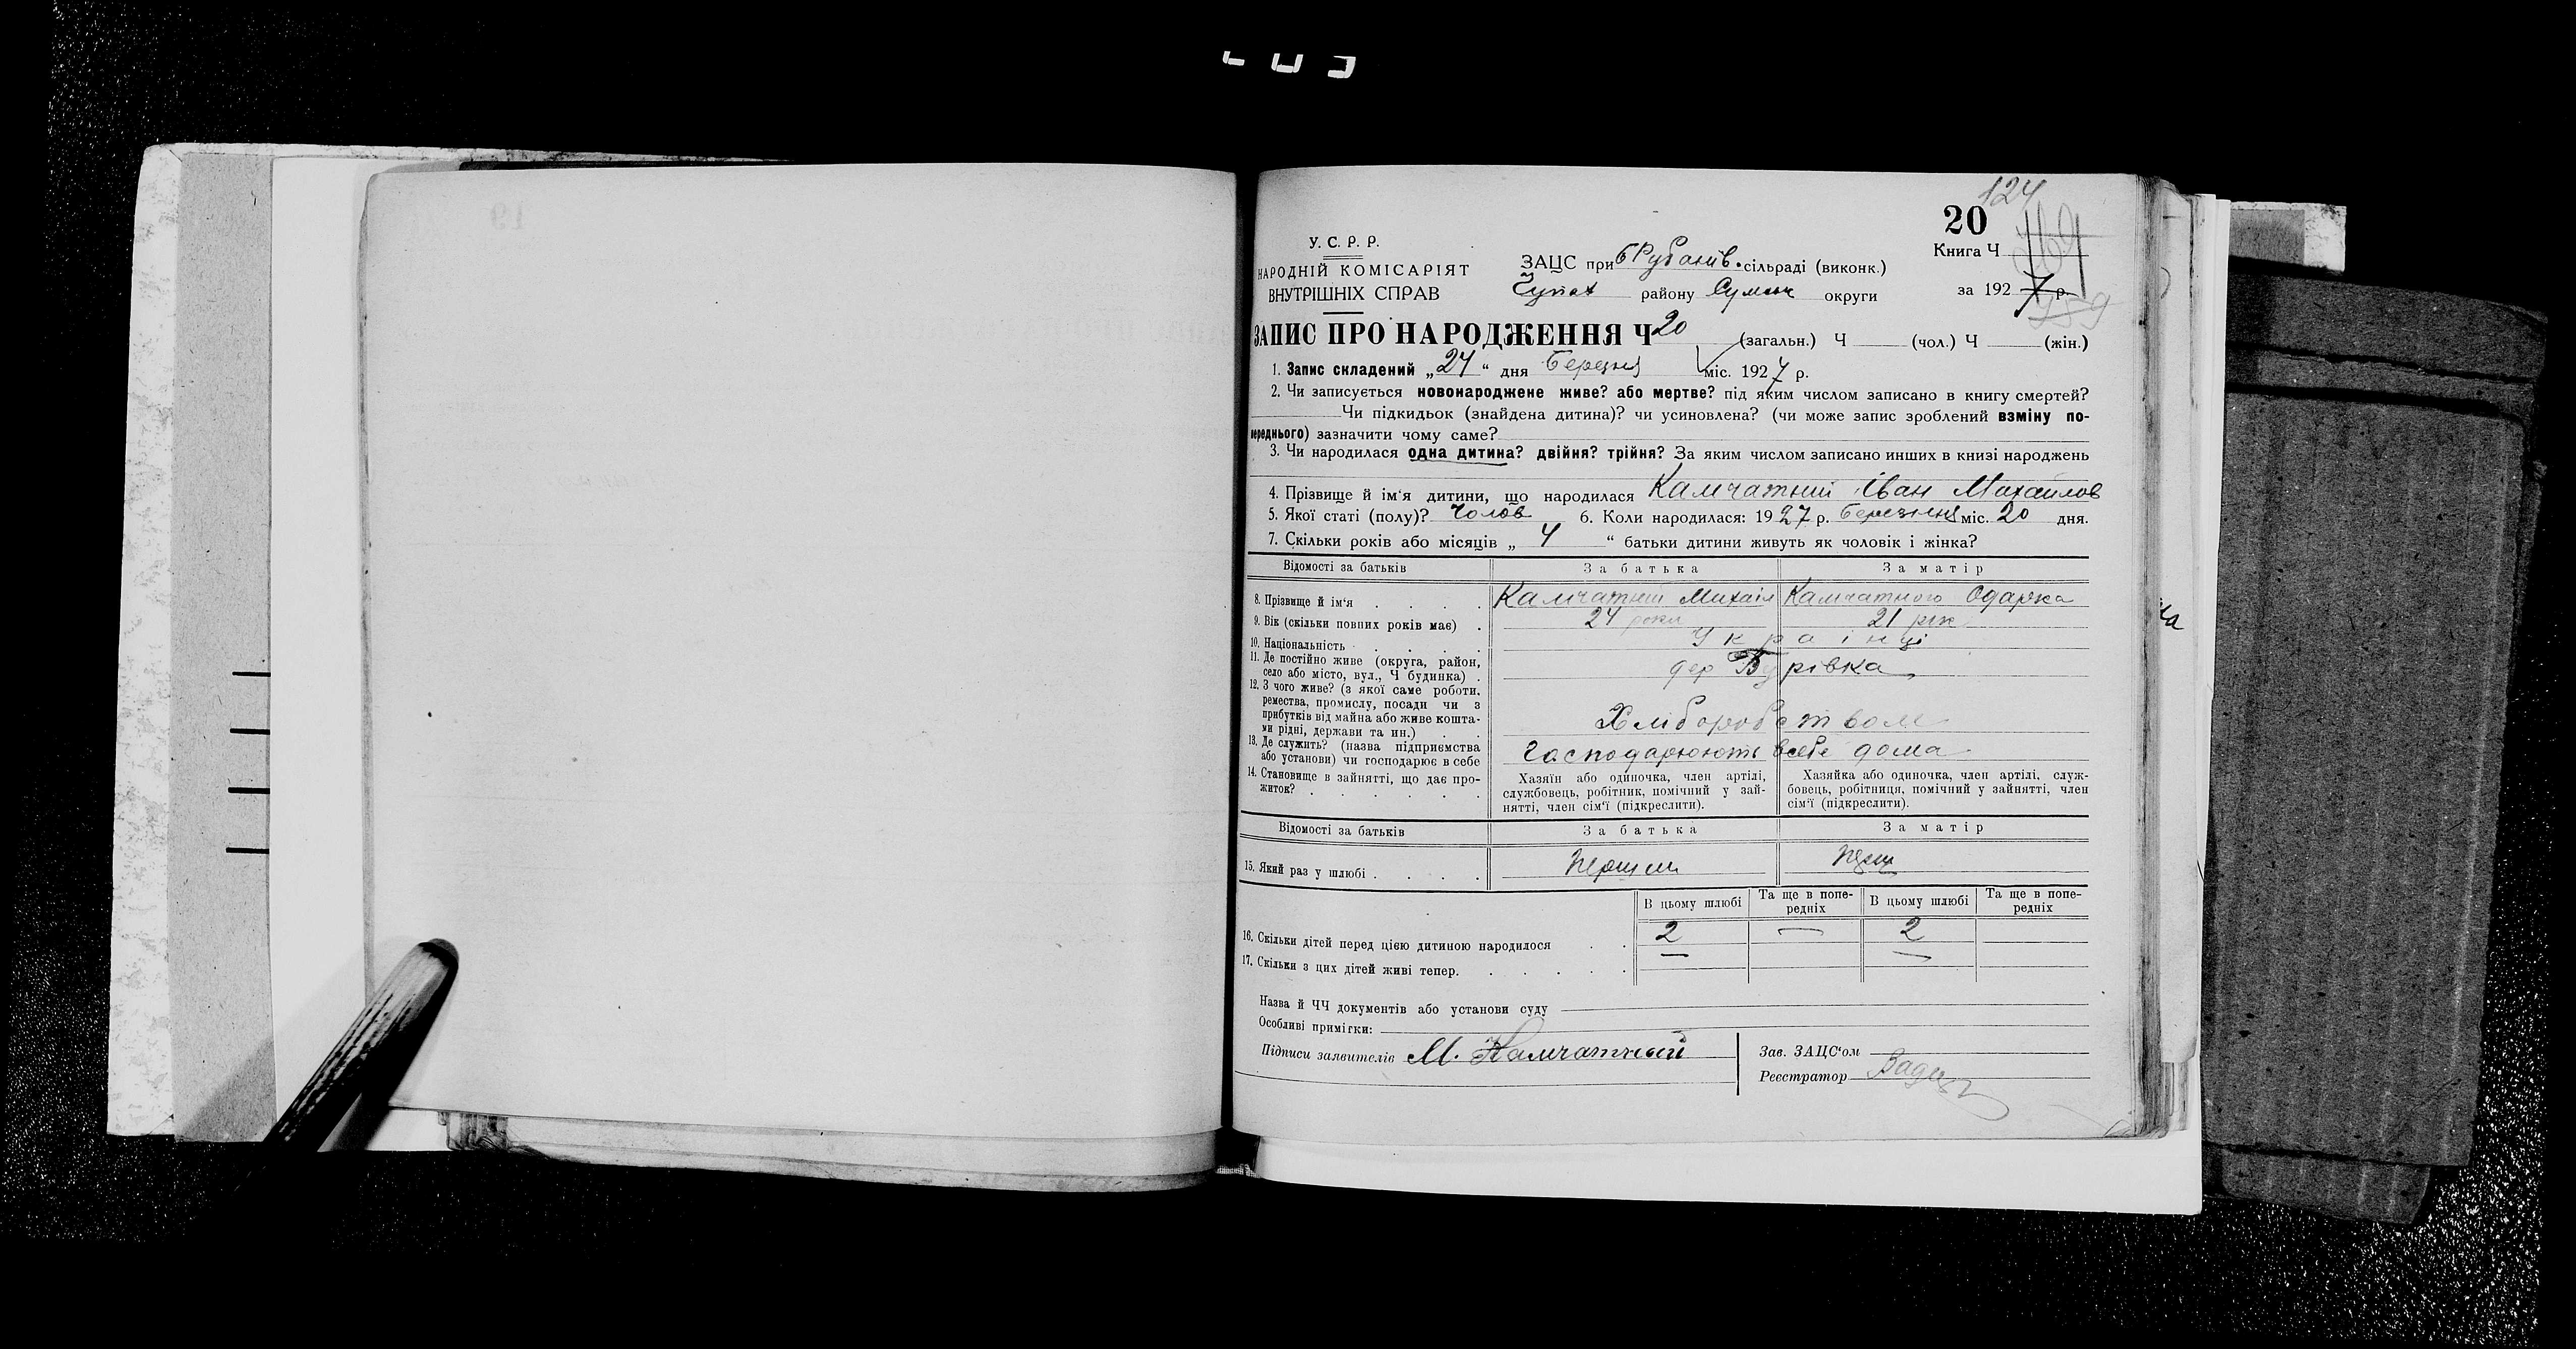 124
20
У. С. Р. Р.
НАРОДНІЙ КОМІСАРІЯТ
ВНУТРІШНІХ СПРАВ
ЗАЦС при б Рубанів. сільраді (виконк.)
Книга Ч
Чупах району Сумськ округи
за 1927 р.
ЗАПИС ПРО НАРОДЖЕННЯ Ч 20 (загальн.) Ч (чол.) Ч (жін.)
1. Запис складений „24“ дня Березня міс. 1927 р.
2. Чи записується новонароджене живе? або мертве? під яким числом записано в книгу смертей?
Чи підкидьок (знайдена дитина)? чи усиновлена? (чи може запис зроблений взміну по-
переднього) зазначити чому саме?
3. Чи народилася одна дитина? двійня? трійня? За яким числом записано инших в книзі народжень
4. Прізвище й ім'я дитини, що народилася Камчатний Іван Михайлов
5. Якої статі (полу)? Чолов 6. Коли народилася: 1927 р. Березня міс. 20 дня.
7. Скільки років або місяців „ 4 “ батьки дитини живуть як чоловік і жінка?
Відомості за батьків За батька За матір
8. Прізвище й ім'я Камчатний Михаіл Камчатного Одарка
9. Вік (скільки повних років має) 24 роки 21 рік
10. Національність Українці
11. Де постійно живе (округа, район,
село або місто, вул., Ч будинка) дер рівка
12. З чого живе? (з якої саме роботи,
ремества, промислу, посади чи з
прибутків від майна або живе кошта-
ми рідні, держави та ин.) Хліборобством
13. Де служить? (назва підприємства
або установи) чи господарює в себе господарюють в себе дома
14. Становище в зайнятті, що дає про-
житок?
Хазяїн або одиночка, член артілі,
службовець, робітник, помічний у зай-
нятті, член сім'ї (підкреслити).
Хазяйка або одиночка, член артілі, служ-
бовець, робітниця, помічний у зайнятті, член
сім'ї (підкреслити).
Відомості за батьків За батька За матір
15. Який раз у шлюбі Перший Перш
В цьому шлюбі Та ще в попе-редніх В цьому шлюбі Та ще в попе-редніх
16. Скільки дітей перед цією дитиною народилося 2 — 2
17. Скільки з цих дітей живі тепер. — —
Назва й ЧЧ документів або установи суду
Особливі примітки:
Підписи заявителів М. Камчатный
Зав. ЗАЦС'ом
Реєстратор